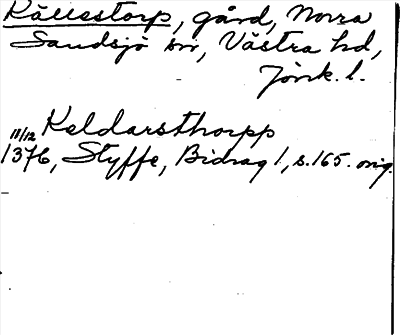 Källstorp, gård, Norra
Sandsjö sn, Västra hd,
Jönk. l.
Keldarsthorpp
11/12 1376, Styffe, Bidrag 1, s. 165. orig.